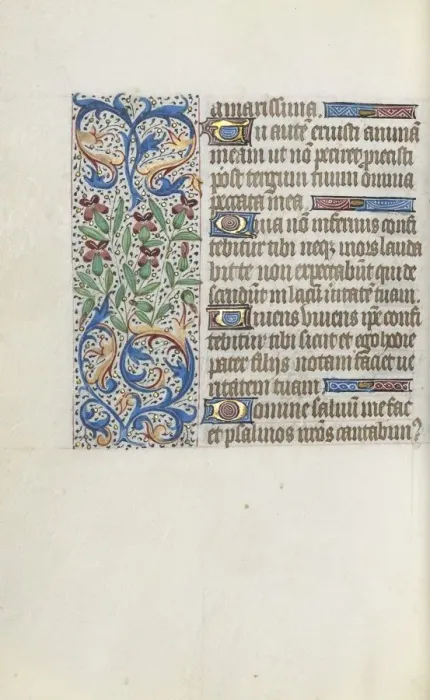 amarissima.
Tu autē eruisti animā
meam ut nō periret proiecisti
post tergum tuum omnia
peccata mea.
Quia nō infernus confi
tebitur tibi neq; mors lauda
bit te non expectabūt qui de
scendūt in lacū ūitatē tuam.
Vivens vivens ip̄e confi
tebitur tibi sicut et ego hodie
pater filiis notam faciet ve
ritatem tuam
Domine salvū me fac
et psalmos n̄ros cantabim9